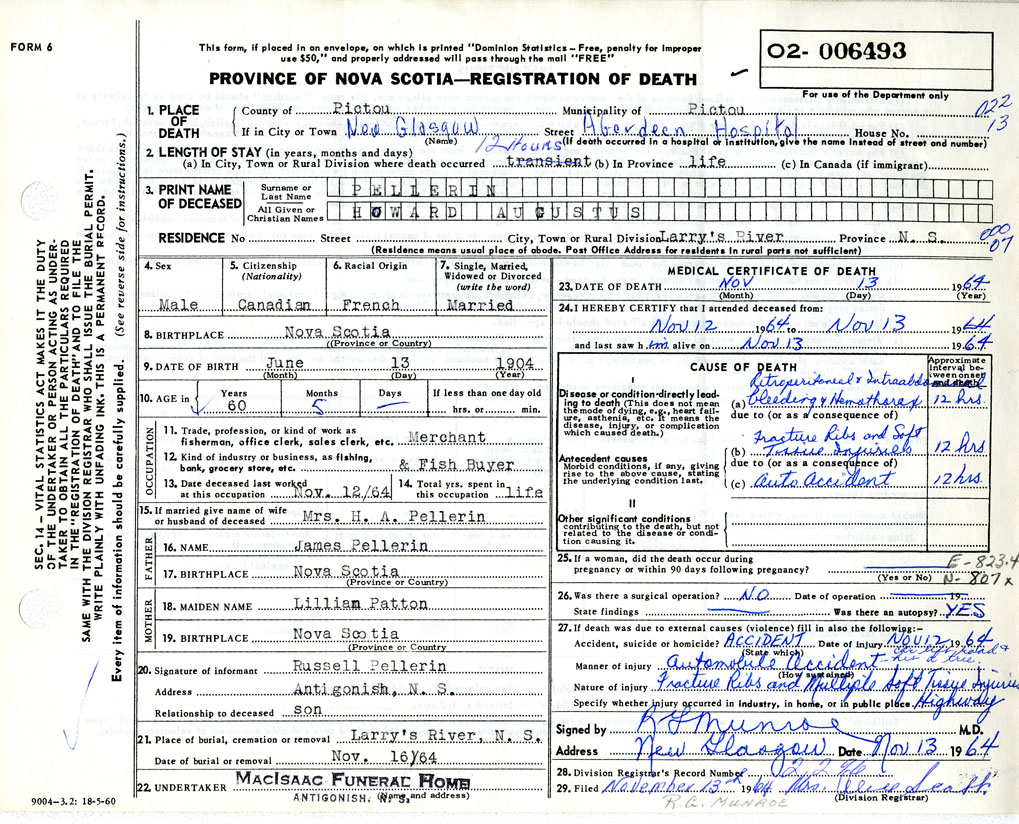 FORM 6
This form, if placed in an envelope, on which is printed "Dominion Statistics – Free, penalty for improper
use $50," and properly addressed will pass through the mail "FREE"
PROVINCE OF NOVA SCOTIA—REGISTRATION OF DEATH
O2- 006493
For use of the Department only
022
13
1. PLACE OF DEATH
County of Pictou Municipality of Pictou
If in City or Town New Glasgow Street Aberdeen Hospital House No.
(Name) (If death occurred in a hospital or institution, give the name instead of street and number)
2. LENGTH OF STAY (in years, months and days) 12 Hours
(a) In City, Town or Rural Division where death occurred transient (b) In Province life (c) In Canada (if immigrant)
3. PRINT NAME OF DECEASED
Surname or Last Name PELLERIN
All Given or Christian Names HOWARD AUGUSTUS
RESIDENCE No Street City, Town or Rural Division Larry's River Province N. S.
000
07
(Residence means usual place of abode. Post Office Address for residents in rural parts not sufficient)
4. Sex
Male
5. Citizenship (Nationality)
Canadian
6. Racial Origin
French
7. Single, Married, Widowed or Divorced (write the word)
Married
8. BIRTHPLACE Nova Scotia
(Province or Country)
9. DATE OF BIRTH June 13 1904
(Month) (Day) (Year)
10. AGE in Years Months Days If less than one day old
60 5 hrs. or min.
OCCUPATION
11. Trade, profession, or kind of work as
fisherman, office clerk, sales clerk, etc. Merchant
12. Kind of industry or business, as fishing,
bank, grocery store, etc. & Fish Buyer
13. Date deceased last worked
at this occupation Nov. 12/64
14. Total yrs. spent in
this occupation life
15. If married give name of wife
or husband of deceased Mrs. H. A. Pellerin
FATHER
16. NAME James Pellerin
17. BIRTHPLACE Nova Scotia
(Province or Country)
MOTHER
18. MAIDEN NAME Lillian Patton
19. BIRTHPLACE Nova Scotia
(Province or Country)
20. Signature of informant Russell Pellerin
Address Antigonish, N. S.
Relationship to deceased son
21. Place of burial, cremation or removal Larry's River, N. S.
Date of burial or removal Nov. 16/64
22. UNDERTAKER MacIsaac Funeral Home
ANTIGONISH. N. S. (Name and address)
9004–3.2: 18-5-60
MEDICAL CERTIFICATE OF DEATH
23. DATE OF DEATH Nov 13 1964
(Month) (Day) (Year)
24. I HEREBY CERTIFY that I attended deceased from:
Nov 12 1964 to Nov 13 1964
and last saw him alive on Nov 13 1964
CAUSE OF DEATH
Approximate interval between onset and death
I
Disease or condition directly leading to death (This does not mean the mode of dying, e.g., heart failure, asthenia, etc. It means the disease, injury, or complication which caused death.)
Retroperitoneal & Intraabdominal
(a) bleeding & Hemothorax 12 hrs.
due to (or as a consequence of)
Antecedent causes
Morbid conditions, if any, giving rise to the above cause, stating the underlying condition last.
Fracture Ribs and Soft
(b) Tissue Injuries 12 hrs
due to (or as a consequence of)
(c) Auto Accident 12 hrs.
II
Other significant conditions
contributing to the death, but not related to the disease or condition causing it.
25. If a woman, did the death occur during
pregnancy or within 90 days following pregnancy?
(Yes or No)
E-823.4
N-807x
26. Was there a surgical operation? NO Date of operation 19
State findings Was there an autopsy? YES
27. If death was due to external causes (violence) fill in also the following:–
Accident, suicide or homicide? ACCIDENT Date of injury Nov 12 1964
(State which)
Manner of injury Automobile Accident - road & hit a tree
(How sustained)
Nature of injury Fracture Ribs and Multiple Soft Tissue Injuries
Specify whether injury occurred in industry, in home, or in public place Highway
Signed by R G Munroe M.D.
Address New Glasgow Date Nov 13 1964
28. Division Registrar's Record Number
29. Filed November 13th 1964 Mrs.
(Division Registrar)
R.G. MUNROE
SEC. 14 – VITAL STATISTICS ACT MAKES IT THE DUTY
OF THE UNDERTAKER OR PERSON ACTING AS UNDER-
TAKER TO OBTAIN ALL THE PARTICULARS REQUIRED
IN THE "REGISTRATION OF DEATH" AND TO FILE THE
SAME WITH THE DIVISION REGISTRAR WHO SHALL ISSUE THE BURIAL PERMIT.
WRITE PLAINLY WITH UNFADING INK. THIS IS A PERMANENT RECORD.
Every item of information should be carefully supplied. (See reverse side for instructions.)